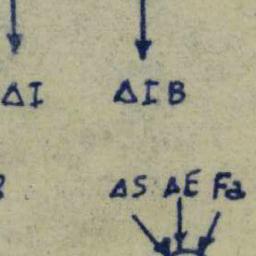 ΔI ΔIB
ΔS ΔE Fa